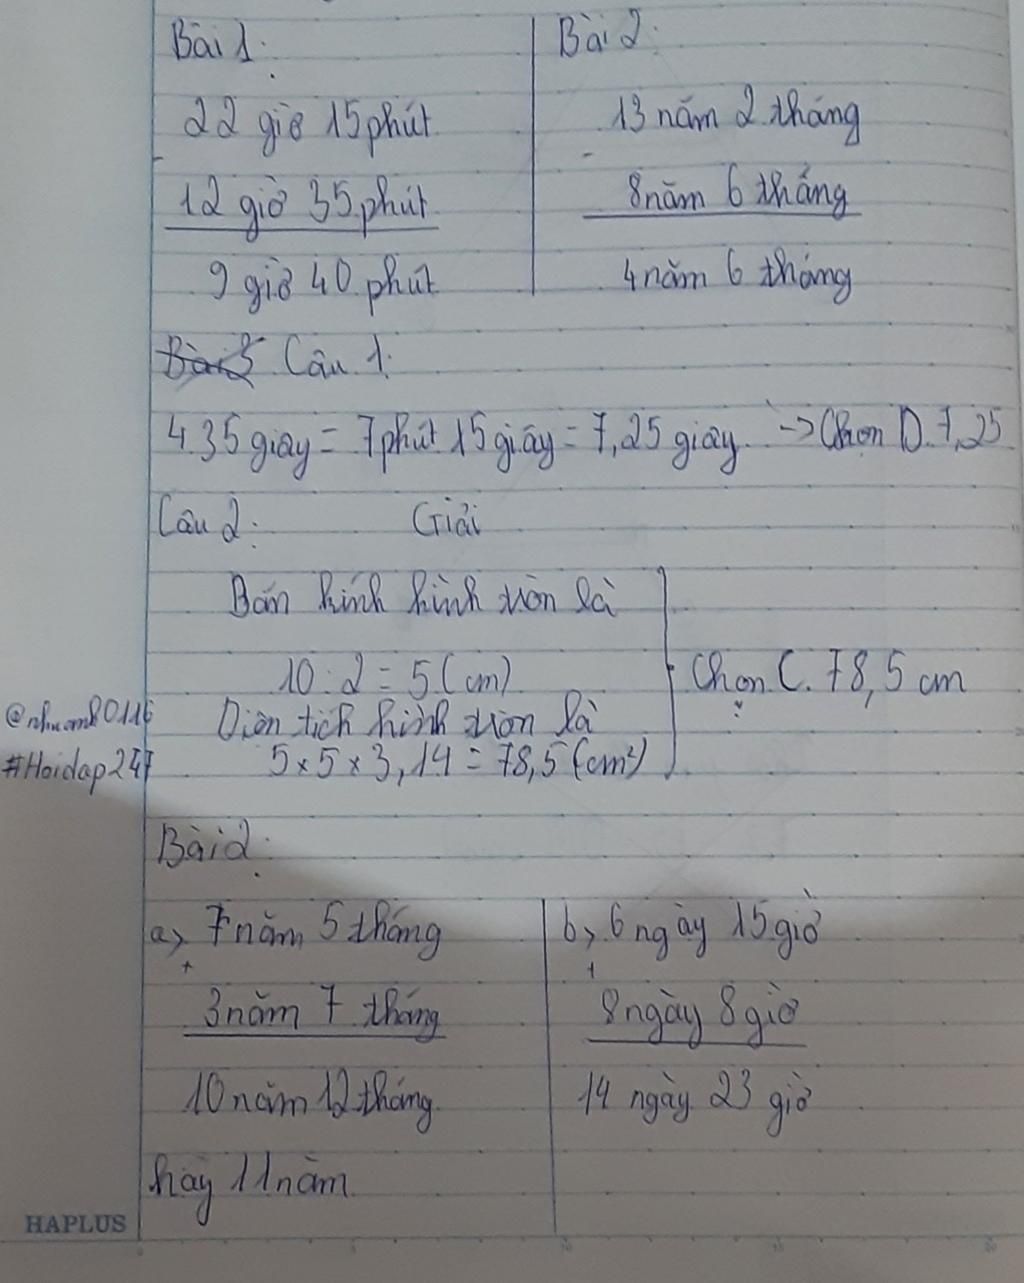 Bài 1:
22 giờ 15 phút
-
12 giờ 35 phút
9 giờ 40 phút
Bài 2:
13 năm 2 tháng
-
8 năm 6 tháng
4 năm 6 tháng
Bài 3 Câu 1:
435 giây = 7 phút 15 giây = 7,25 giây -> Chọn D. 7,25
Câu 2: Giải
Bán kính hình tròn là
10 : 2 = 5 (cm)
Diện tích hình tròn là
5 x 5 x 3,14 = 78,5 (cm²)
Chọn C. 78,5 cm
#Hoidap247
Bài 2:
a, 7 năm 5 tháng
+
3 năm 7 tháng
10 năm 12 tháng
hay 11 năm
b, 6 ngày 15 giờ
+
8 ngày 8 giờ
14 ngày 23 giờ
HAPLUS